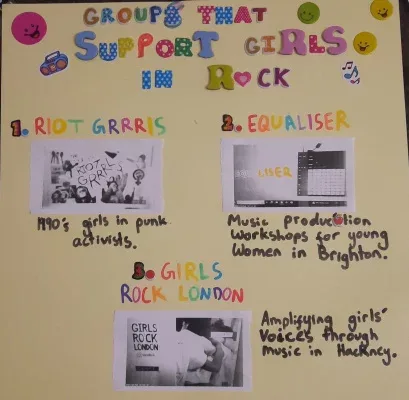 GROUPS THAT
SUPPORT GIRLS
IN ROCK
1. RIOT GRRRlS
RIOT
GRRRL
1990's girls in punk
activists.
2. EQUALISER
LISER
Music production
Workshops for young
Women in Brighton.
3. GIRLS
ROCK LONDON
GIRLS
ROCK
LONDON
Amplifying girls'
Voices through
music in Hackney.